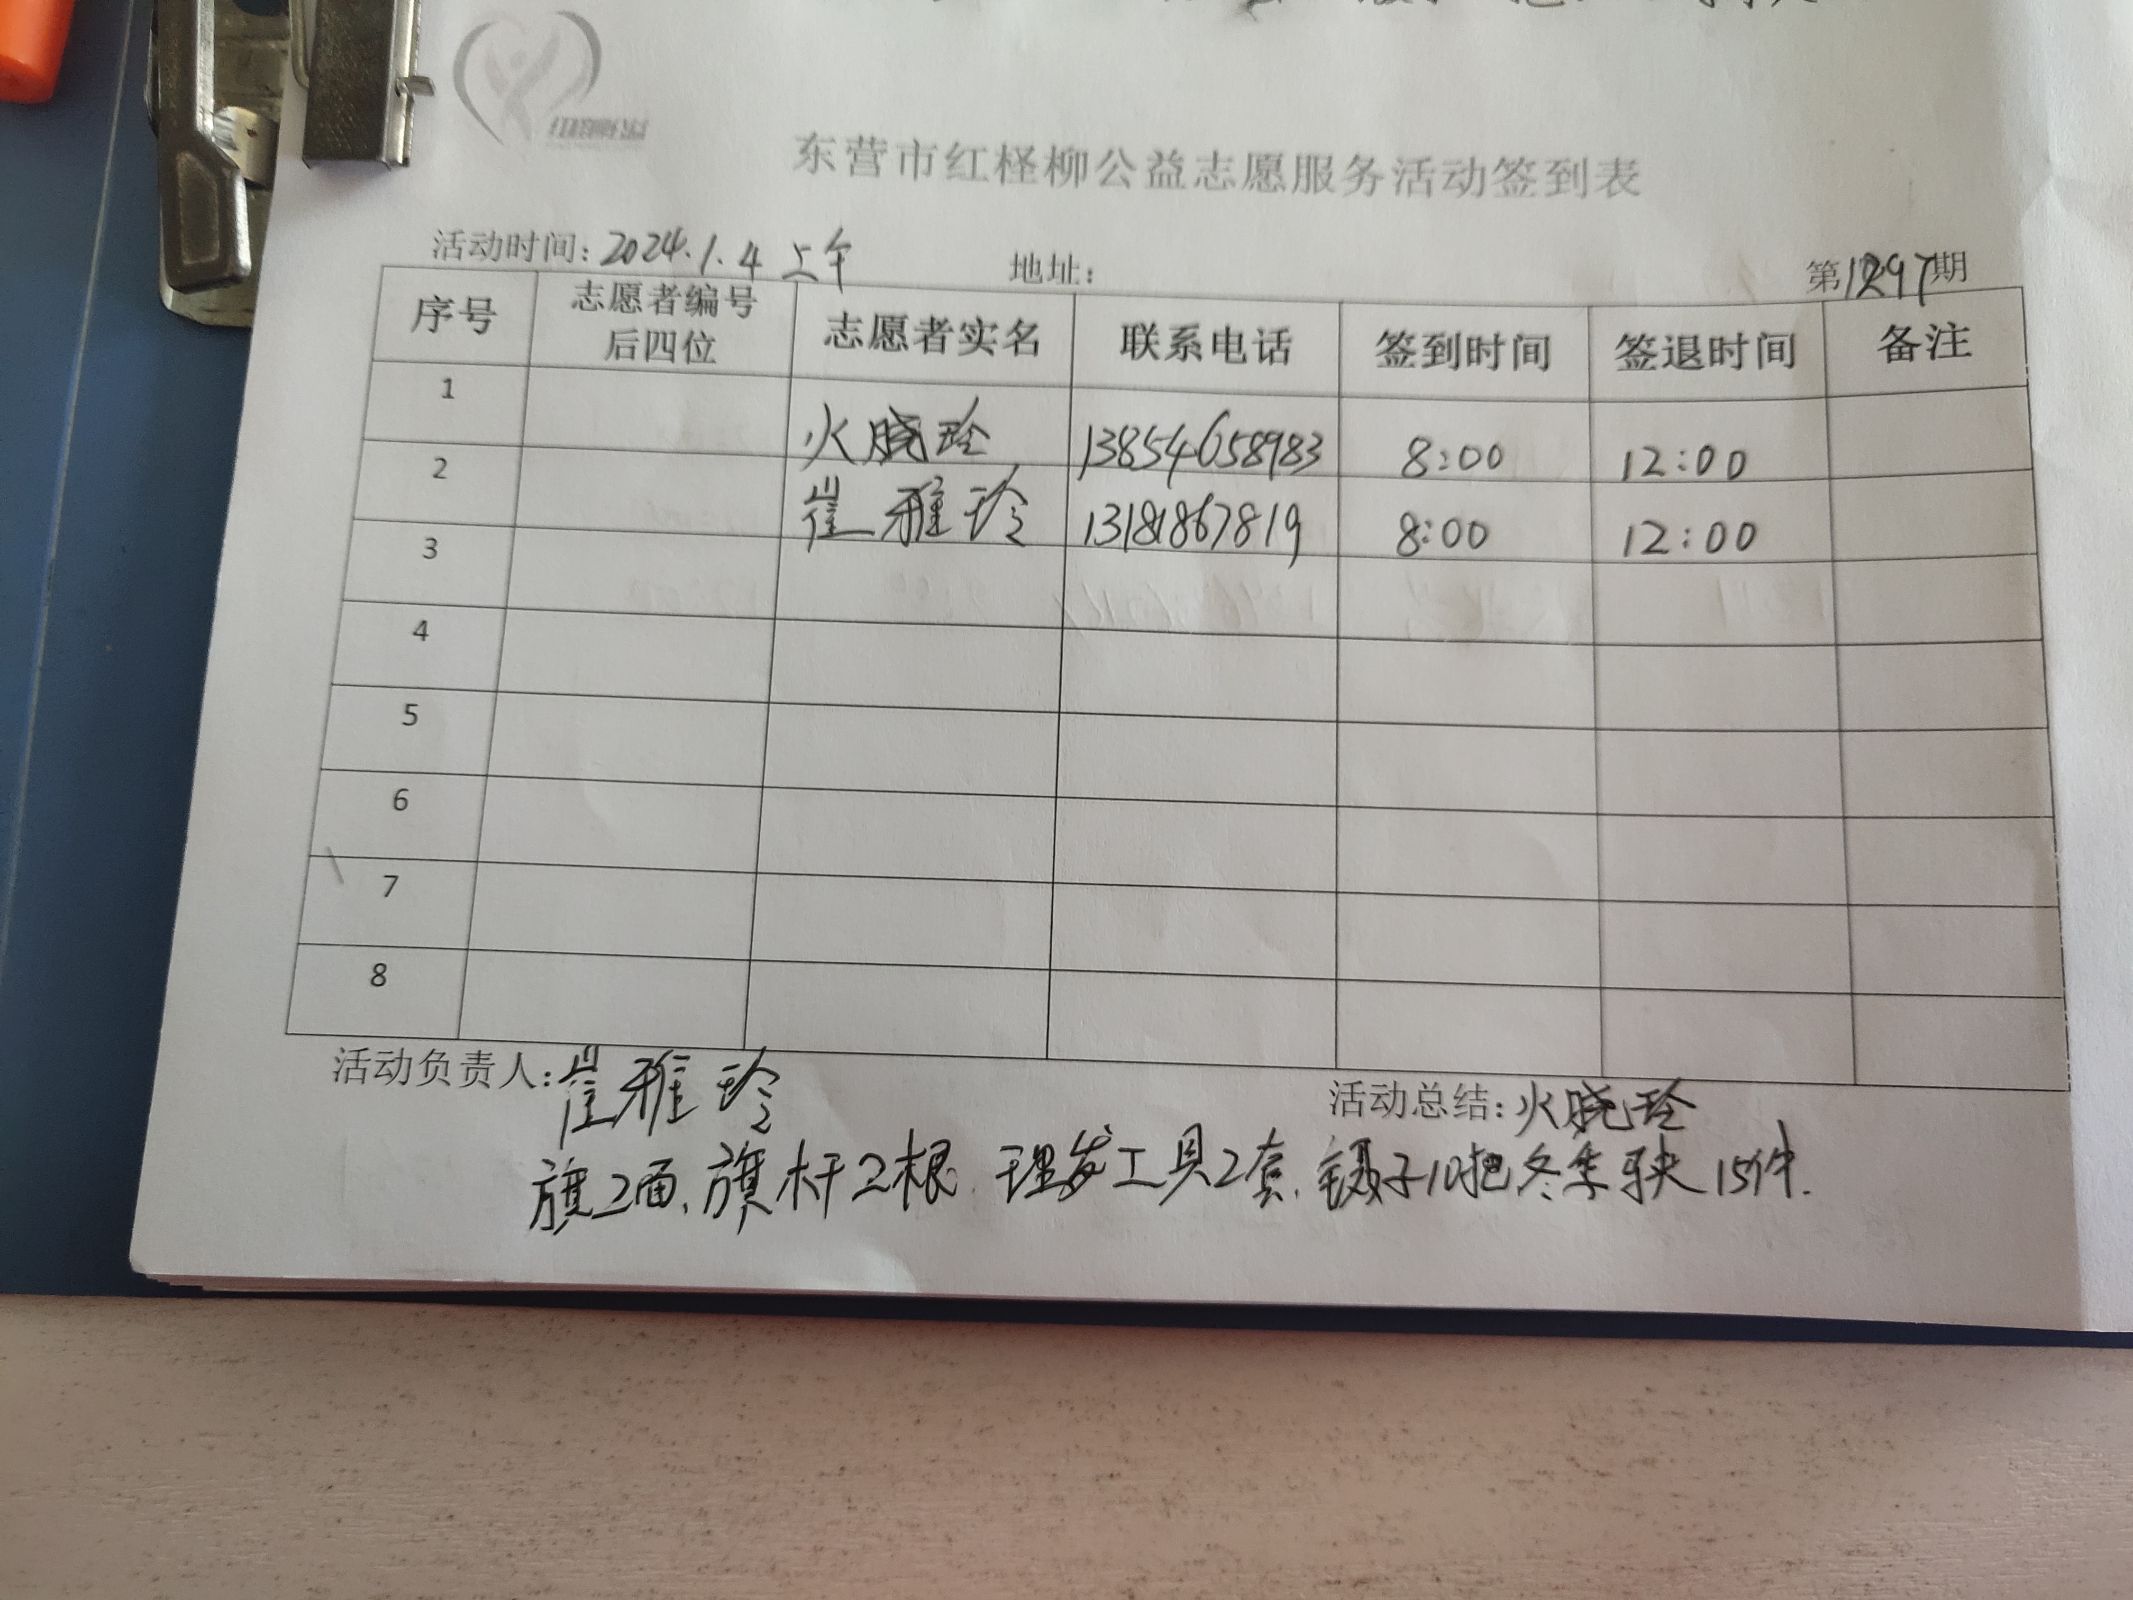 东营市红柽柳公益志愿服务活动签到表
活动时间: 2024.1.4 上午 地址: 第1297期
序号 志愿者编号后四位 志愿者实名 联系电话 签到时间 签退时间 备注
1 火晓玲 13854658983 8:00 12:00
2 崔雅玲 13181867819 8:00 12:00
3
4
5
6
7
8
活动负责人: 崔雅玲 活动总结: 火晓玲
旗2面、旗杆2根、理发工具2套、镊子10把冬季夹15件.